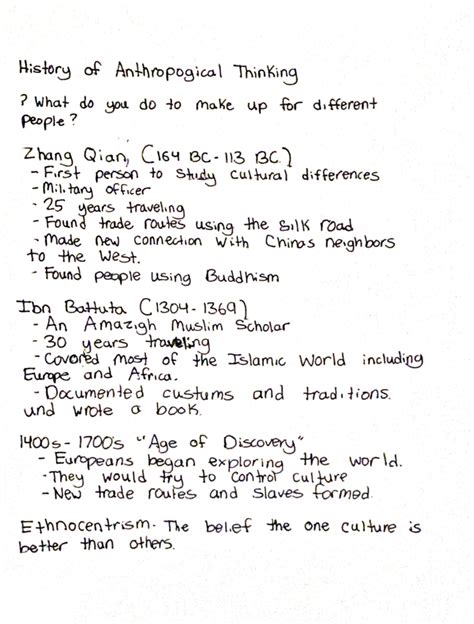 History of Anthropogical Thinking
? What do you do to make up for different
people?
Zhang Qian, (164 BC - 113 BC.)
- First person to study cultural differences
- Military officer
- 25 years traveling
- Found trade routes using the silk road
- Made new connection with Chinas neighbors
to the West.
- Found people using Buddhism
Ibn Battuta (1304 - 1369)
- An Amazigh Muslim Scholar
- 30 years traveling
- Covored most of the Islamic World including
Europe and Africa.
- Documented custums and traditions.
und wrote a book.
1400s - 1700's "Age of Discovery"
- Europeans began exploring the world.
- They would try to control culture
- New trade routes and slaves formed.
Ethnocentrism - The belief the one culture is
better than others.